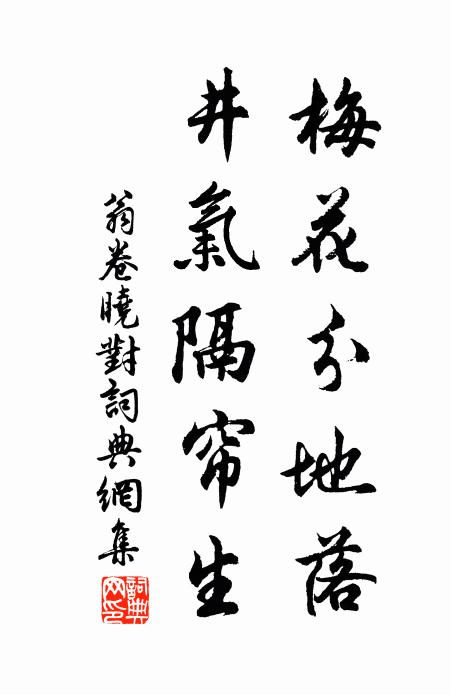 梅花分地落
井氣隔帘生
翁卷曉對詞典網集
詞典网印